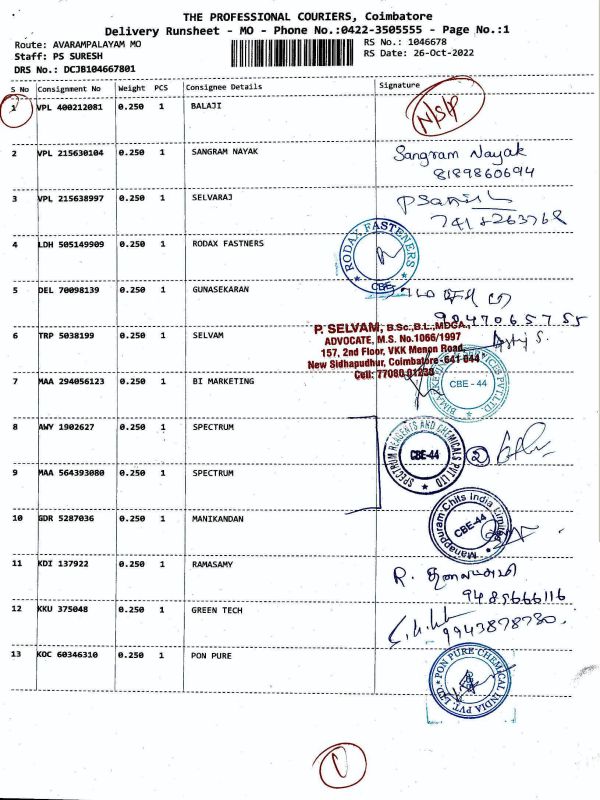 THE PROFESSIONAL COURIERS, Coimbatore
Delivery Runsheet - MO - Phone No.:0422-3505555 - Page No.:1
Route: AVARAMPALAYAM MO
RS No.: 1046678
Staff: PS SURESH
RS Date: 26-Oct-2022
DRS No.: DCJB104667801
S No Consignment No Weight PCS Consignee Details Signature
1 VPL 400212081 0.250 1 BALAJI
N/S/P
2 VPL 215630104 0.250 1 SANGRAM NAYAK Sangram Nayak
8189860694
3 VPL 215638997 0.250 1 SELVARAJ
4 LDH 505149909 0.250 1 RODAX FASTNERS
RODAX FASTENERS
CBE
5 DEL 70098139 0.250 1 GUNASEKARAN
P. SELVAM, B.Sc.,B.L.,MDGA.,
6 TRP 5038199 0.250 1 SELVAM
ADVOCATE, M.S. No.1066/1997
157, 2nd Floor, VKK Menon Road,
New Sidhapudhur, Coimbatore-641 044
Cell: 77080 01230
7 MAA 294056123 0.250 1 BI MARKETING
CBE - 44
8 AWY 1902627 0.250 1 SPECTRUM
SPECTRUM REAGENTS AND CHEMICALS PVT LTD
CBE-44
2
9 MAA 564393080 0.250 1 SPECTRUM
10 GDR 5287036 0.250 1 MANIKANDAN
Manappuram Chits India Limited
CBE-44
11 KDI 137922 0.250 1 RAMASAMY
R.
9489666116
12 KKU 375048 0.250 1 GREEN TECH
9943878780.
13 KOC 60346310 0.250 1 PON PURE
PON PURE CHEMICAL INDIA PVT. LTD